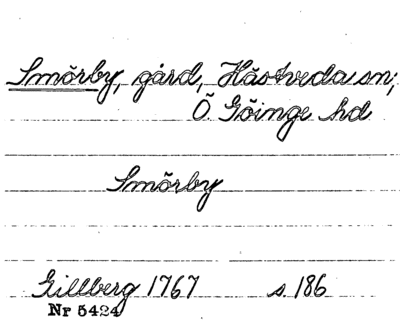 Smörby, gård, Hästveda sn;
Ö Göinge hd
Smörby
Gillberg 1767 s. 186
Nr 5424